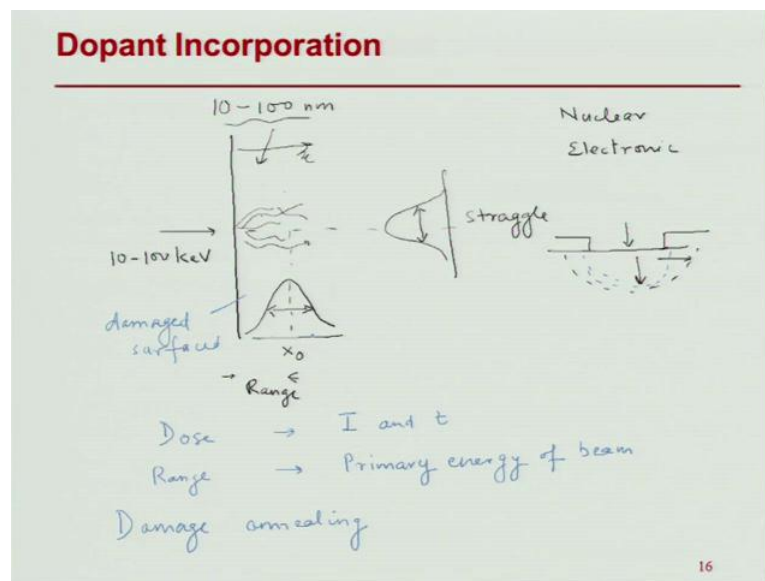 Dopant Incorporation
10-100 nm
x
Nuclear
Electronic
10-100 keV
straggle
damaged
surfaced
x₀
Range
Dose → I and t
Range → Primary energy of beam
Damage annealing
16